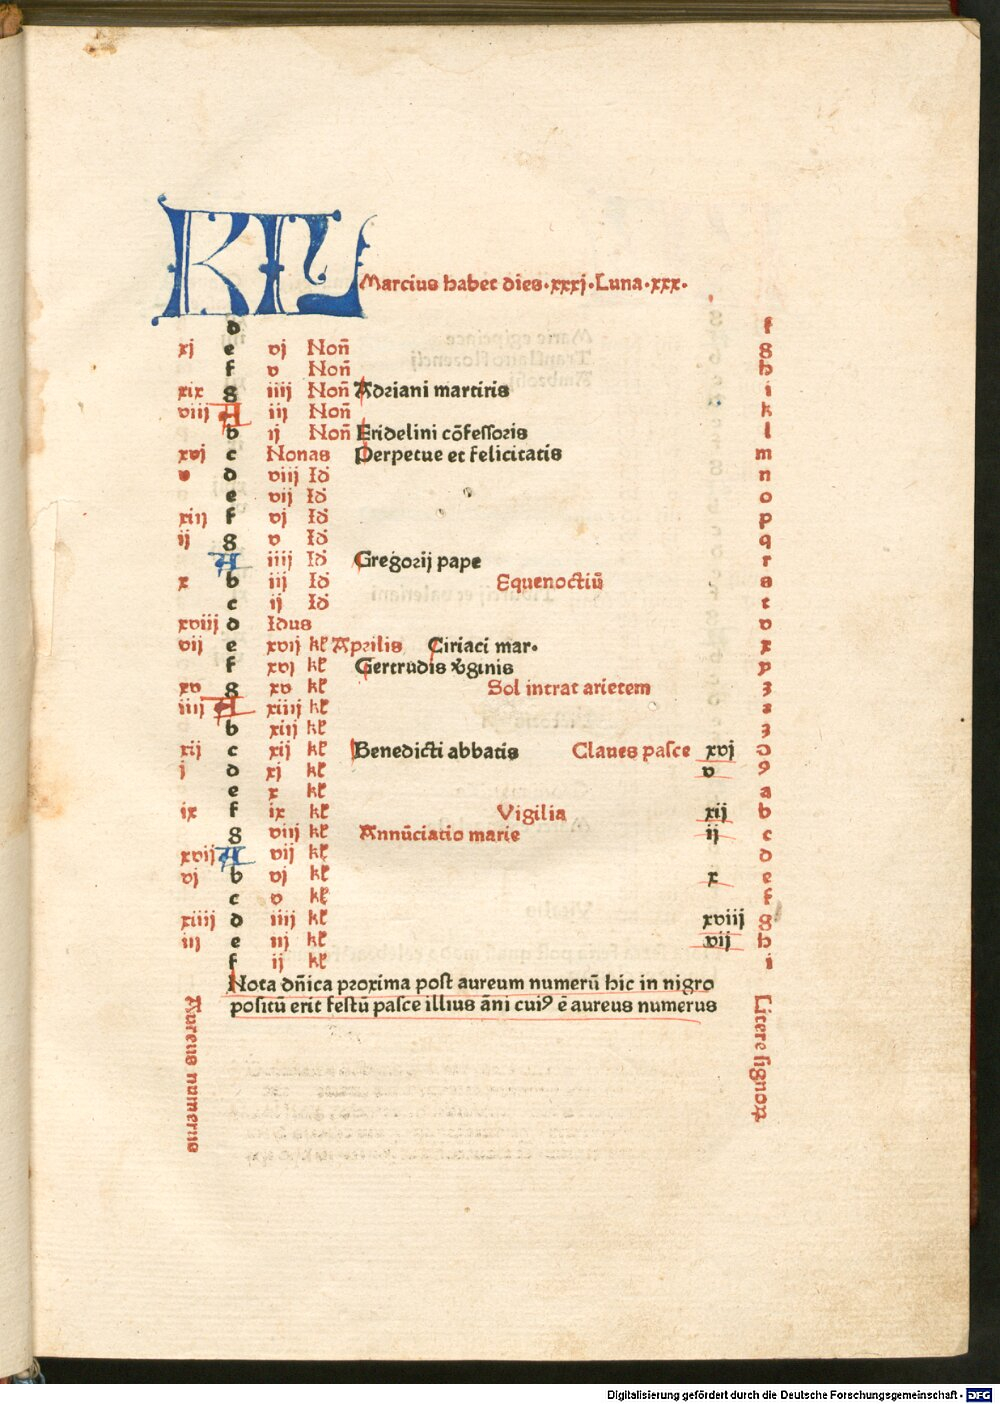 KL Marcius habet dies·xxxj·Luna·xxx·
d f
xj e vj Non̄ g
f v Non̄ h
xix g iiij Non̄ Adriani martiris i
viij A iij Non̄ k
b ij Non̄ Fridelini cōfessoris l
xvj c Nonas Perpetue et felicitatis m
v d viij Id n
e vij Id o
xiij f vj Id p
ij g v Id q
A iiij Id Gregorij pape r
x b iij Id Equenoctiū s
c ij Id t
xviij d Idus v
vij e xvij kł Aprilis Ciriaci mar· x
f xvj kł Gertrudis v̄ginis y
xv g xv kł Sol intrat arietem z
iiij A xiiij kł
b xiij kł
xij c xij kł Benedicti abbatis Claues pasce xvj
j d xj kł v 9
e x kł a
ix f ix kł Vigilia xij b
g viij kł Annūciatio marie ij c
xvij A vij kł d
vj b vj kł x e
c v kł f
xiiij d iiij kł xviij g
iij e iij kł vij h
f ij kł i
Nota dn̄ica proxima post aureum numerū hic in nigro
positū erit festū pasce illius āni cui9 ē aureus numerus
Aureus numerus
Litere signoꝝ
Digitalisierung gefördert durch die Deutsche Forschungsgemeinschaft · DFG